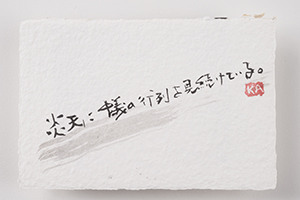 炎天に蟻の行列を見続けている。
KA